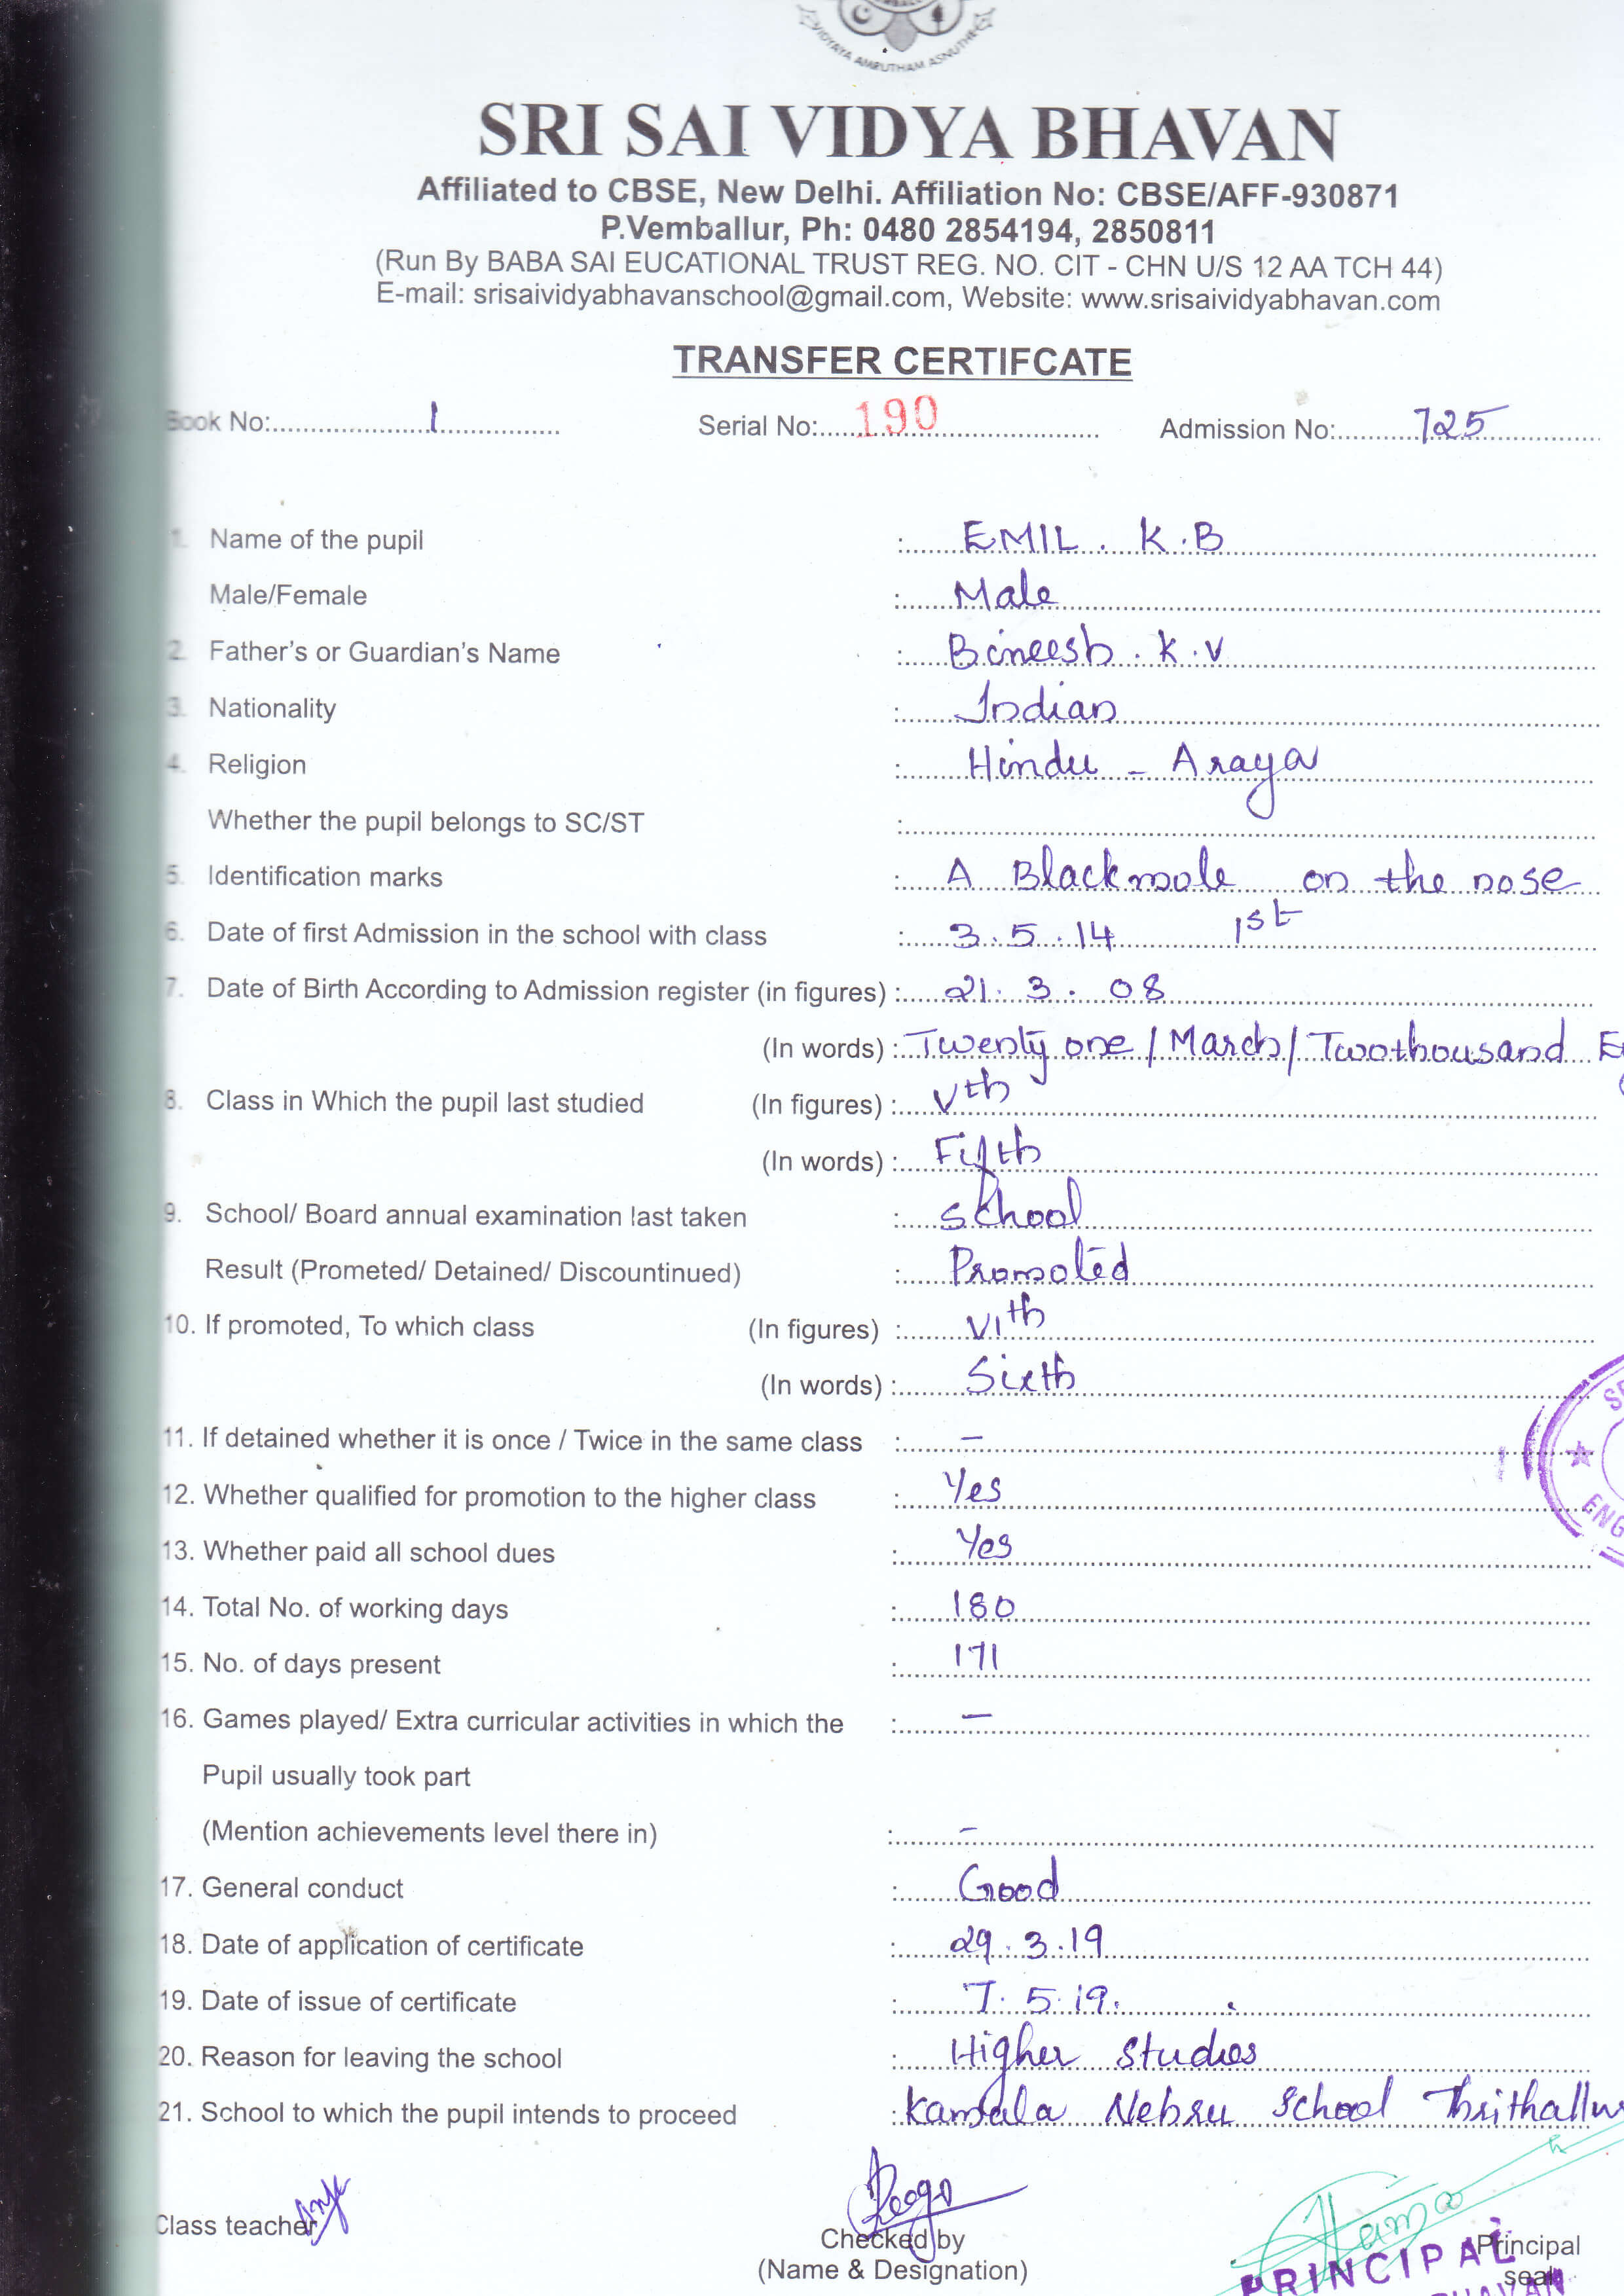 VIDYAYA AMRUTHAM ASNUTHE
SRI SAI VIDYA BHAVAN
Affiliated to CBSE, New Delhi. Affiliation No: CBSE/AFF-930871
P.Vemballur, Ph: 0480 2854194, 2850811
(Run By BABA SAI EUCATIONAL TRUST REG. NO. CIT - CHN U/S 12 AA TCH 44)
E-mail: srisaividyabhavanschool@gmail.com, Website: www.srisaividyabhavan.com
TRANSFER CERTIFCATE
Book No: 1 Serial No: 190 Admission No: 725
1. Name of the pupil : EMIL . K . B
Male/Female : Male
2. Father's or Guardian's Name : Bineesh . K . V
3. Nationality : Indian
4. Religion : Hindu - Araya
Whether the pupil belongs to SC/ST :
5. Identification marks : A Blackmole on the nose
6. Date of first Admission in the school with class : 3.5.14 1st
7. Date of Birth According to Admission register (in figures) : 21.3.08
(In words) : Twenty one / March / Twothousand E
8. Class in Which the pupil last studied (In figures) : Vth
(In words) : Fifth
9. School/ Board annual examination last taken : School
Result (Prometed/ Detained/ Discountinued) : Promoted
10. If promoted, To which class (In figures) : VIth
(In words) : Sixth
11. If detained whether it is once / Twice in the same class : -
12. Whether qualified for promotion to the higher class : Yes
13. Whether paid all school dues : Yes
14. Total No. of working days : 180
15. No. of days present : 171
16. Games played/ Extra curricular activities in which the : -
Pupil usually took part
(Mention achievements level there in) : -
17. General conduct : Good
18. Date of application of certificate : 29.3.19
19. Date of issue of certificate : 7.5.19.
20. Reason for leaving the school : Higher Studies
21. School to which the pupil intends to proceed : Kamala Nehru School Thrithallur
Class teacher Checked by Principal
(Name & Designation) seal
PRINCIPAL
ENG